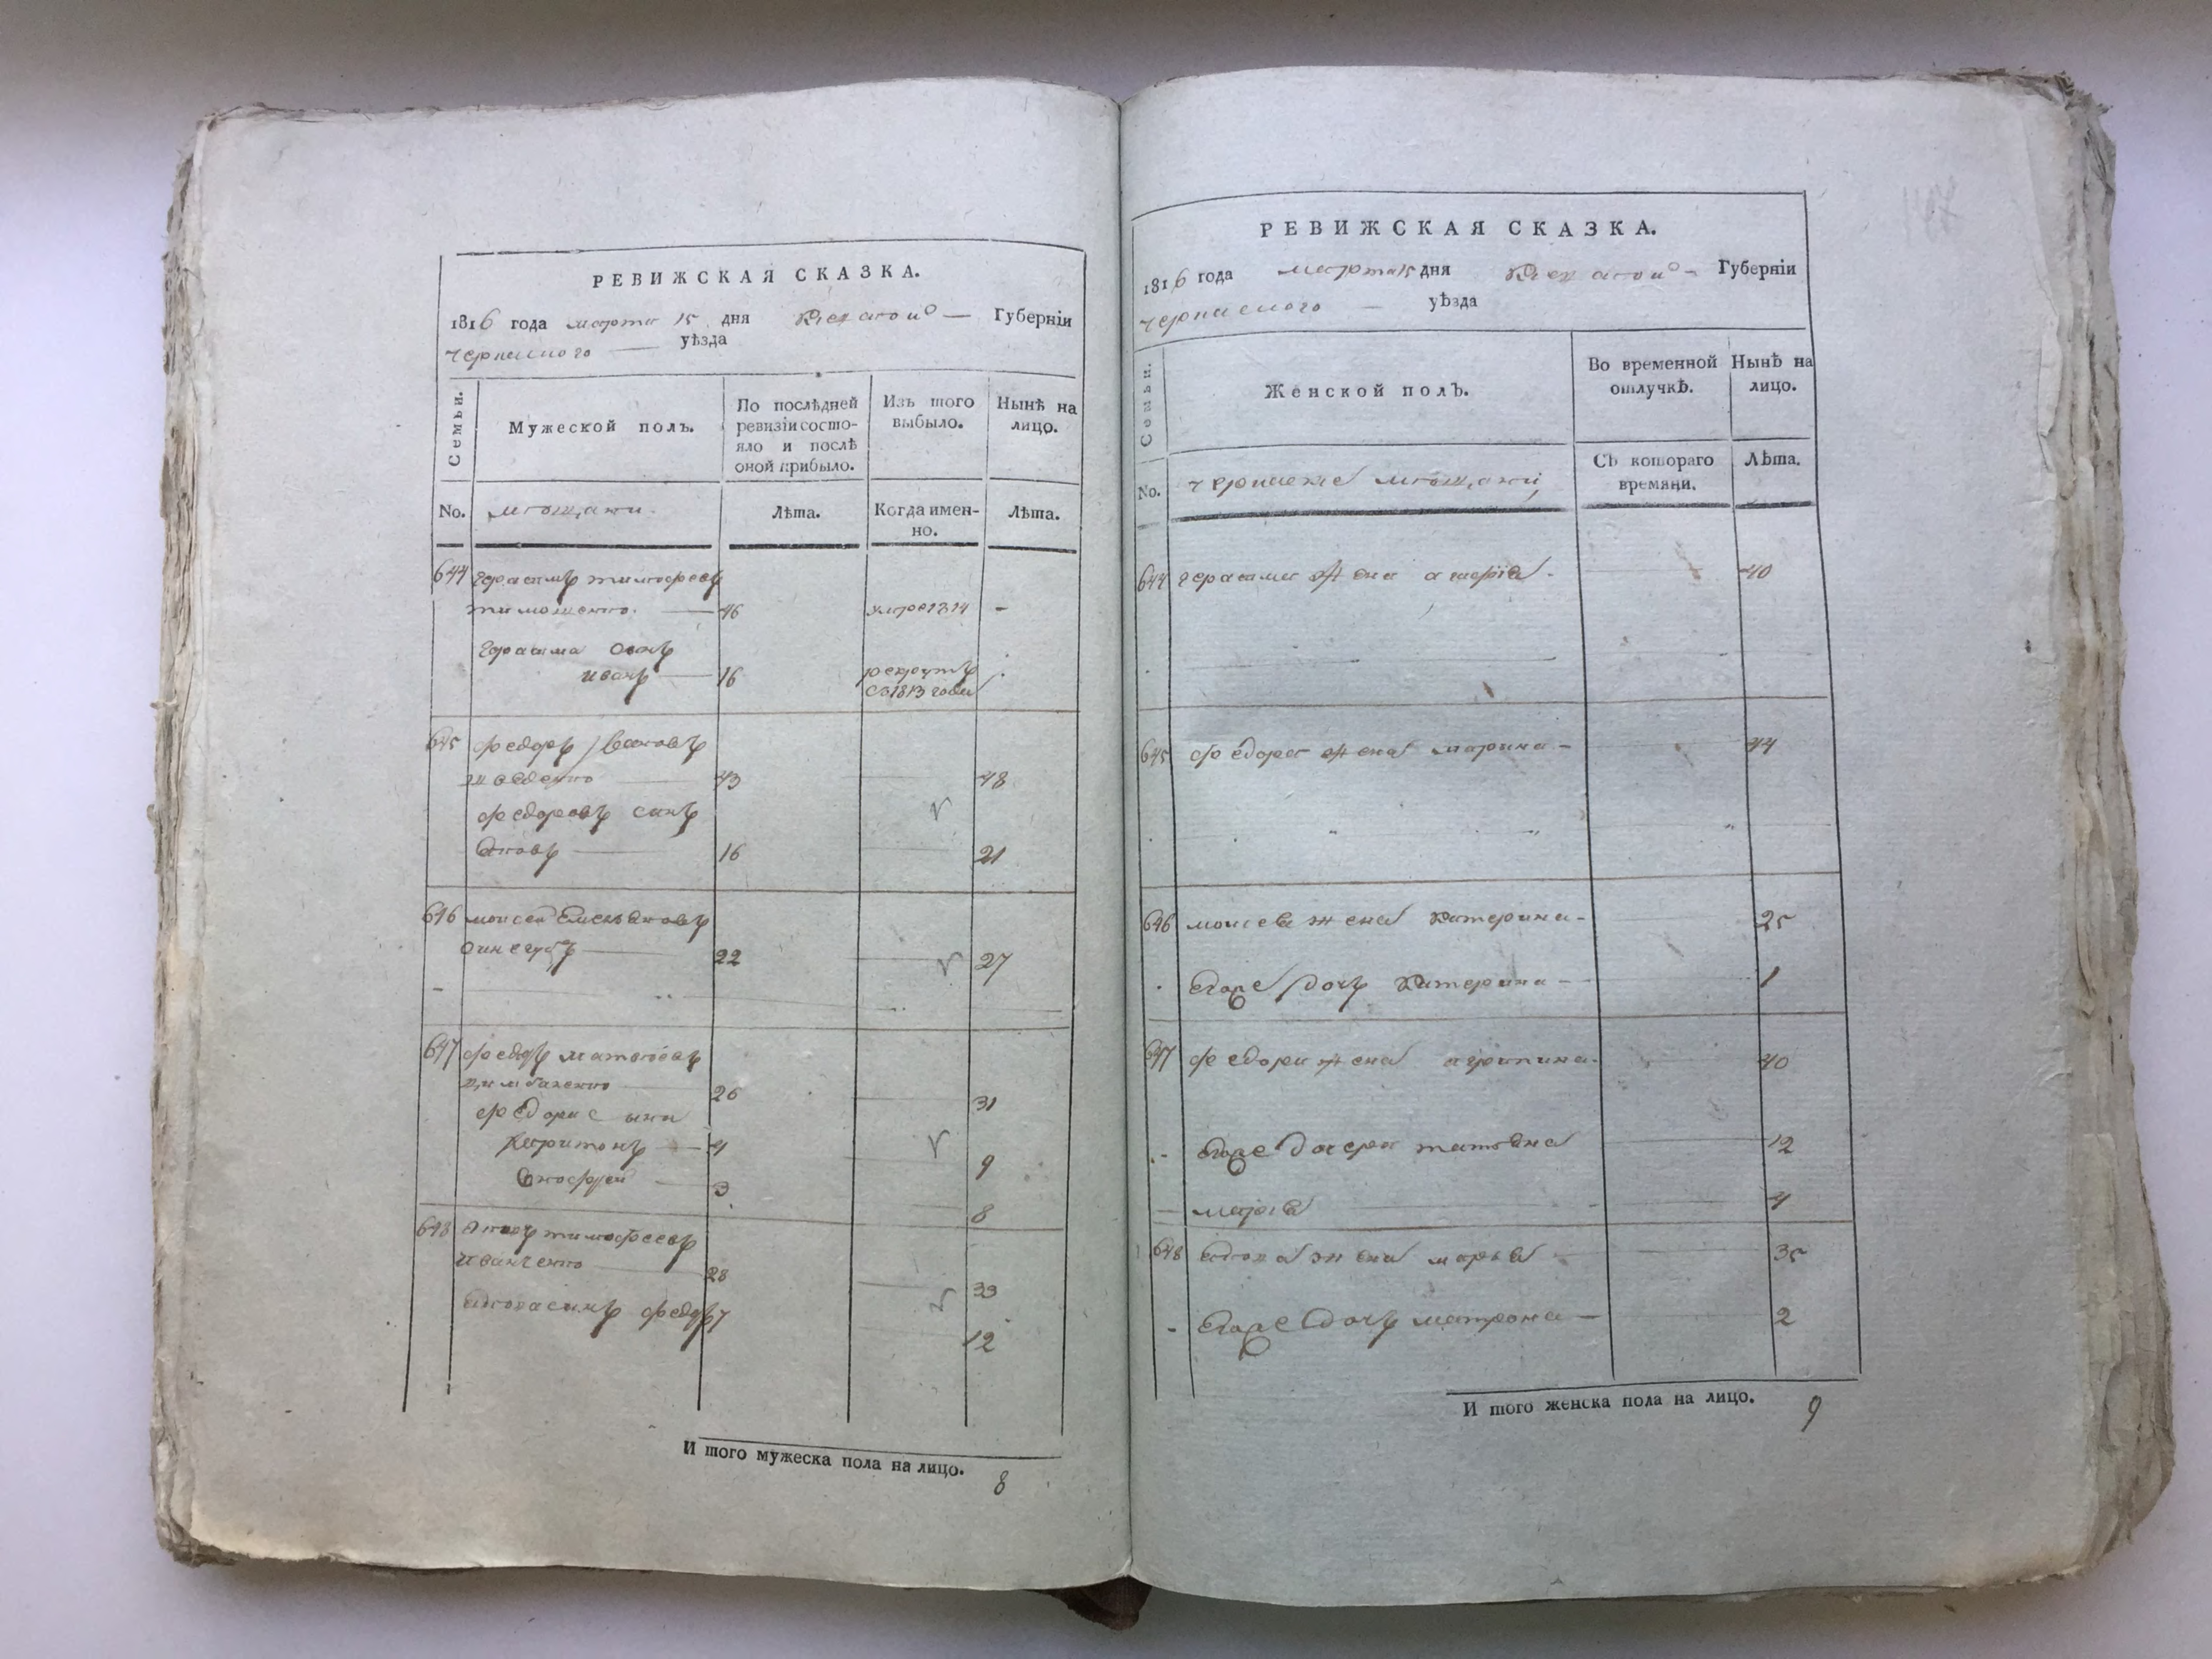 РЕВИЖСКАЯ СКАЗКА.
1816 года марта 15 дня Киевской Губернїи
черкаского уѣзда
Семьи.
Мужеской полъ.
По послѣдней ревизїи состояло и послѣ оной прибыло.
Изъ того выбыло.
Нынѣ на лицо.
No. мѣщани.
Лѣта.
Когда именно.
Лѣта.
644 Герасимъ тимофѣевъ
тимошенко. 46 умре 1814 -
Герасима сынъ
иванъ 16 рекрутъ
съ 1813 года
645 федоръ Ивановъ
шведенко 43 48
федоровъ синъ
Яковъ 16 21
646 моисей Емельяновъ
22 27
647 федоръ матвѣевъ
цимбаленко 26 31
федора сыни
Харитонъ 4 9
8
3
648 Яковъ тимофѣевъ
иванченко 28 33
Якова синъ федоръ 7 12
И того мужеска пола на лицо. 8
РЕВИЖСКАЯ СКАЗКА.
1816 года марта 15 дня Киевской Губернїи
черкаского уѣзда
Семьи.
Женской полъ.
Во временной отлучкѣ.
Нынѣ на лицо.
No. черкаские мѣщани
Съ котораго времяни.
Лѣта.
644 герасима жена 40
645 федора жена марина 44
646 моисея жена катерина 25
Его же дочь Катерина 1
647 федора жена агрипина 40
Его же дочери татьяна 12
марія 4
648 Якова жена марья 35
Его же дочь матрона 2
И того женска пола на лицо. 9